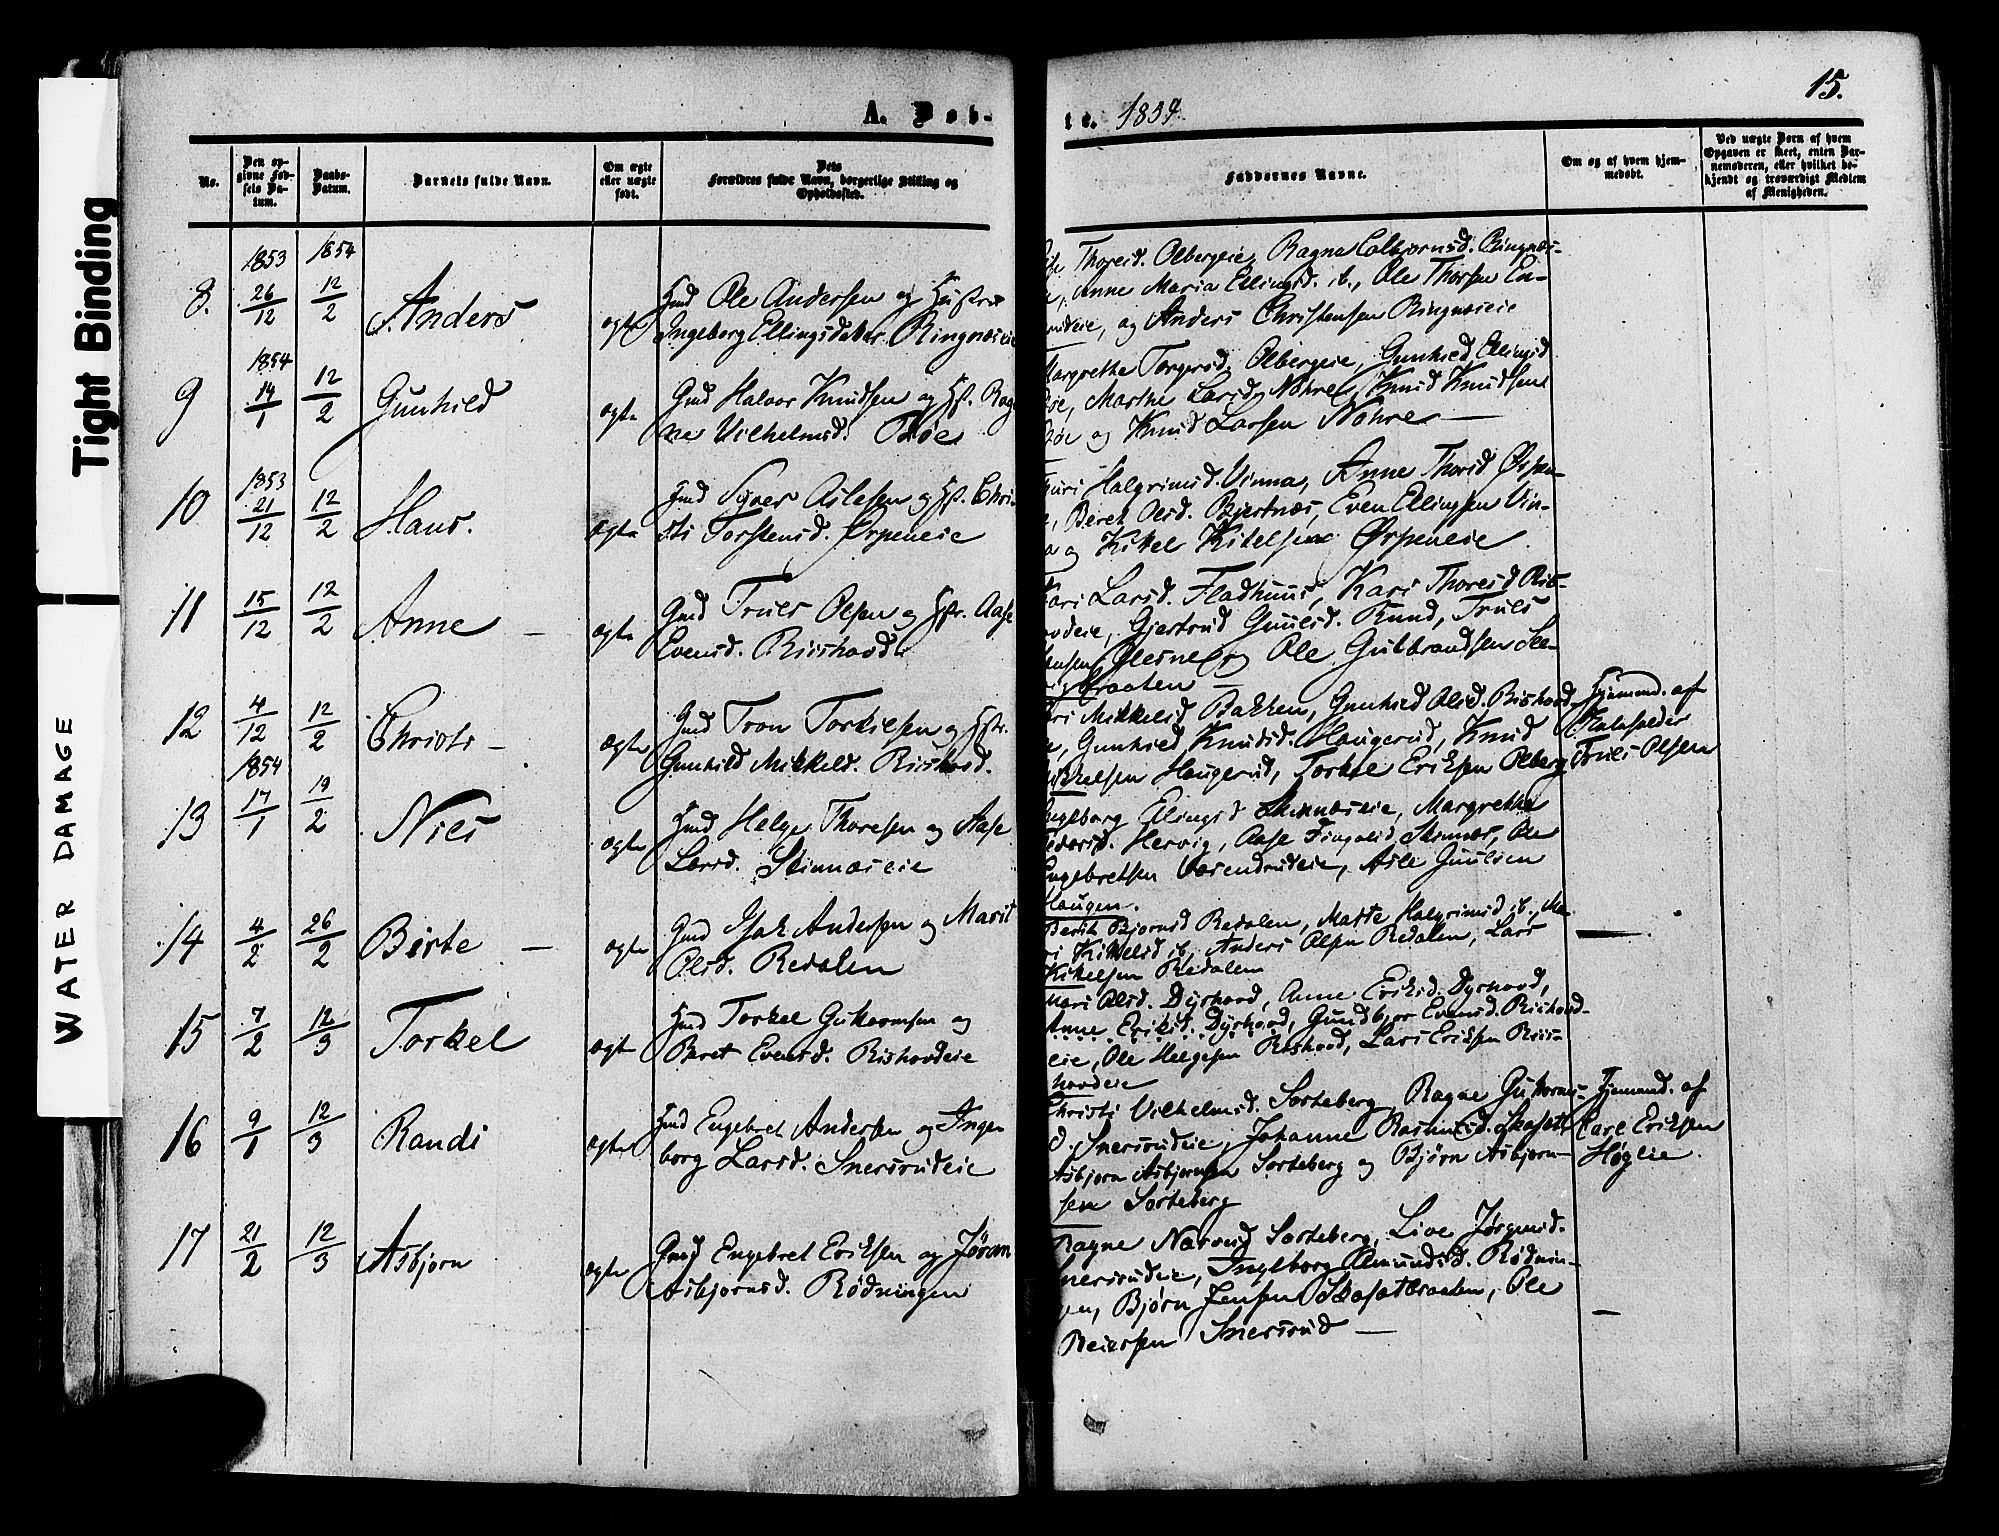 Tight Binding
WATER DAMAGE
A. Døb-
te. 1854.
15.
No.
Den op-
givne Fød-
sels Da-
tum.
Daabs-
Datum.
Barnets fulde Navn.
Om ægte
eller uægte
født.
Dets
Forældres fulde Navn, borgerlige Stilling og
Opholdssted.
Faddernes Navne.
Om og af hvem hjem-
medøbt.
Ved uægte Børn af hvem
Opgaven er skeet, enten Bar-
nemoderen, eller hvilket be-
kjendt og troværdigt Medlem
af Menigheden.
1853 1854
8. 26/12 12/2 Anders ægte
Hmd Ole Andersen og Hustru
Ingeborg Ellingsdatter Ringnæseie
Thoresd. Olbergeie, Ragne Colbjørnsd. Ringnæs-
Anne Maria Ellingsd. ib., Ole Thorsen En-
rudeie, og Anders Christensen Ringnæseie
1854
9 14/1 12/2 Gunhild ægte
Gmd Halvor Knudsen og Hst. Rag-
ne Vilhelmsd. Bøe
Margrethe Torgrsd. Olbergeie, Gunhild Ellingsd
Bøe, Marthe Larsd. Nohre, Knud Knudsen
Bøe og Knud Larsen Nohre —
1853
10 21/12 12/2 Hans. ægte
Hmd Syver Aslesen og Hst. Chri-
sti Torstensd. Ørpeneie
Guri Halgrimsd. Vinna, Anne Thorsd Ørpen-
Beret Olsd. Bjertnæs, Even Ellingsen Vin-
na og Kittel Kittelsen Ørpeneie.
11 15/12 12/2 Anne — ægte
Gmd Truls Olsen og Hstr. Aase
Evensd. Riishovd.
Kari Larsd. Fladhuus, Kari Thoresd Ris-
hovdeie, Gjertrud Guulsd. Rund, Truls
Glesne og Ole Gulbrandsen Sle-
braaten —
12 4/12 12/2 Christi — ægte
Gmd Tron Torkilsen og Hstr.
Gunhild Mikkelsd. Riishovd.
Mikkelsd Bakken, Gunhild Olsd. Rishovd-
e, Gunhild Knudsd. Haugerud, Knud
Mikkelsen Haugerud, Torkel Eriksen Olberg
Hjemmd. af
Skoleholder
Truls Olsen
1854
13 17/1 19/2 Niels ægte
Hmd Helge Thoresen og Aase
Larsd. Skinnæseie
Ingeborg Ellingsd Skinnæseie, Margrethe
Pedersd. Hervig, Aase Fingalsd Skinnæs, Ole
Engebretsen Vasendrudeie, Asle Guulsen
Haugen.
14 4/2 26/2 Birte — ægte
Gmd Isak Andersen og Marit
Olsd. Redalen
Berit Bjørnsd Redalen, Marte Halgrimsd ib., Ma-
ri Kittelsd ib, Anders Olsen Redalen, Lars
Kittelsen Redalen
—
15 7/2 12/3 Torkel ægt
Hmd Torkel Guttormsen og
Beret Evensd. Rishovdeie
Mari Olsd. Dyrhovd, Anne Eriksd. Dyrhovd,
Anne Eriksd. Dyrhovd, Gundbjør Evensd. Riishovd-
eie, Ole Helgesen Rishovd, Lars Eriksen Riis-
hovdeie
16 9/1 12/3 Randi ægte
Hmd Engebret Andersen og Inge-
borg Larsd. Snersrudeie
Christi Vilhelmsd. Sorteberg, Ragne Guttorms-
d. Snersrudeie, Johanne Rasmusd. Skafott-
Asbjørn Asbjørnsen Sorteberg og Bjørn Asbjørn-
sen Sorteberg
Hjemmd. af
Carl Eriksen
Høglie.
17 21/2 12/3 Asbjørn ægte
Gmd Engebret Eriksen og Jøran
Asbjørnsd. Rødningen
Ragne Narvesd Sorteberg, Live Jørgensd.
Snersrudeie, Ingeborg Amundsd. Rødnin-
gen, Bjørn Jensen Skafotbraaten, Ole
Reiersen Snersrud —
—